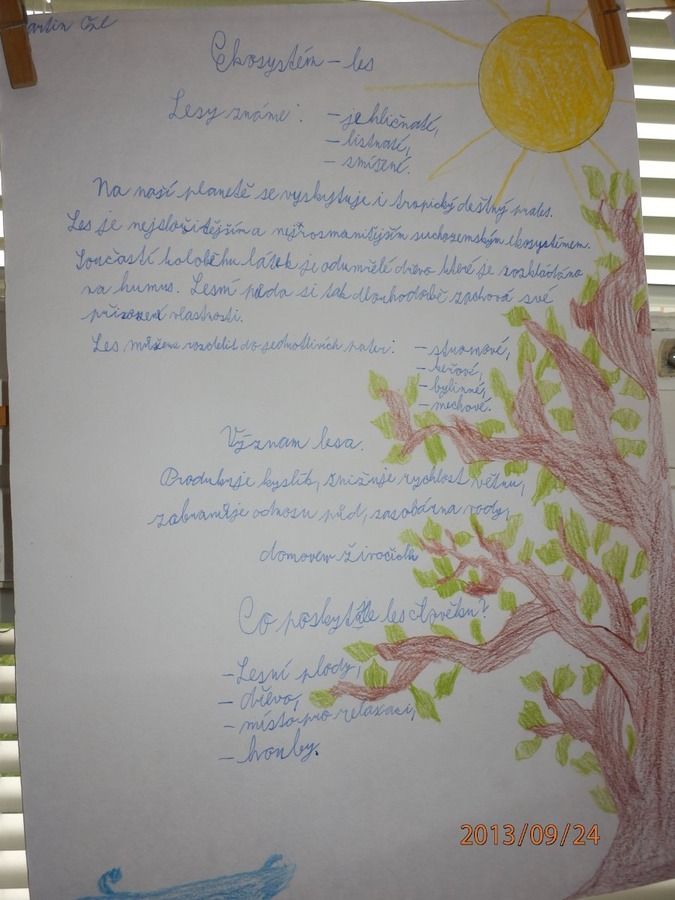 artin
Ekosystém – les
Lesy známe: – jehličnaté,
– listnaté,
– smíšené.
Na naší planetě se vyskytuje i tropický deštný prales.
Les je nejsložitějším a nejrozmanitějším suchozemským ekosystémem.
Součastí koloběhu látek je odumřelé dřevo které je rozkládáno
na humus. Lesní půda si tak dlouhodobě zachová své
přirozené vlastnosti.
Les můžeme rozdělit do jednotlivích pater: – stromové,
– keřové,
– bylinné,
– mechové.
Význam lesa.
Produkuje kyslík, snižuje rychlost větru,
zabraňuje odnosu půd, zásobárna vody,
domovem živočichů
Co poskytuje les člověku?
– Lesní plody,
– dřevo,
– místo pro relaxaci,
– houby.
2013/09/24